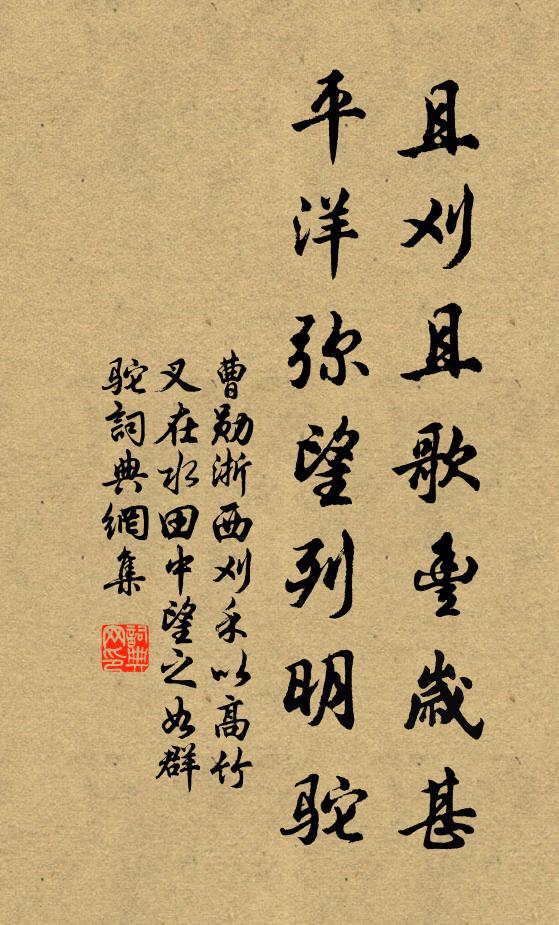 且刈且歌豊歳甚
平洋弥望列明駝
曹勛浙西刈禾以高竹
叉在水田中望之如群
駝詞典網集
詞典网印